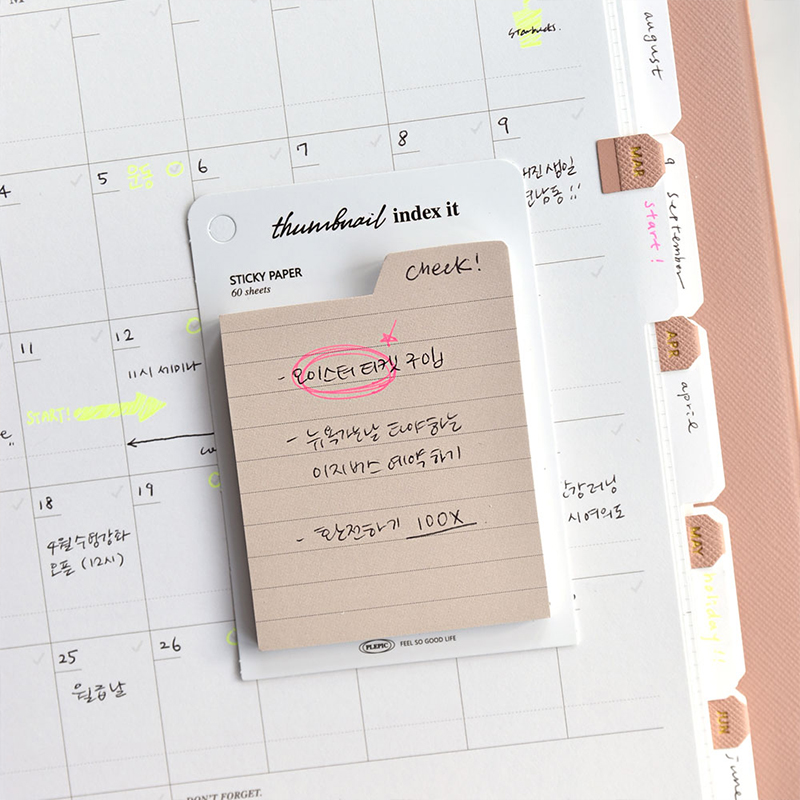 starbucks.
august
4
5 운동
6
7
8
9
생일
thumbnail index it
STICKY PAPER
60 sheets
check!
- 오이스터 티켓 구입
- 뉴욕가는날 타야하는
이지버스 예약하기
- 환전하기 100X
PLEPIC
FEEL SO GOOD LIFE
11
12
11시 세미나
START!
18
19
4월수영강좌
오픈 (12시)
강러닝
시여의도
25
26
월급날
DON'T FORGET.
MAR
9 september
start!
APR
aprie
MAY
holiday!!
JUN
june